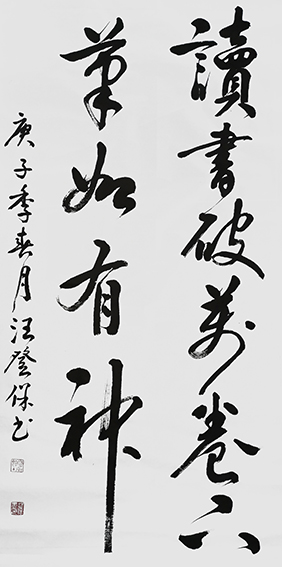 讀書破萬卷下
筆如有神
庚子季春月汪登保书